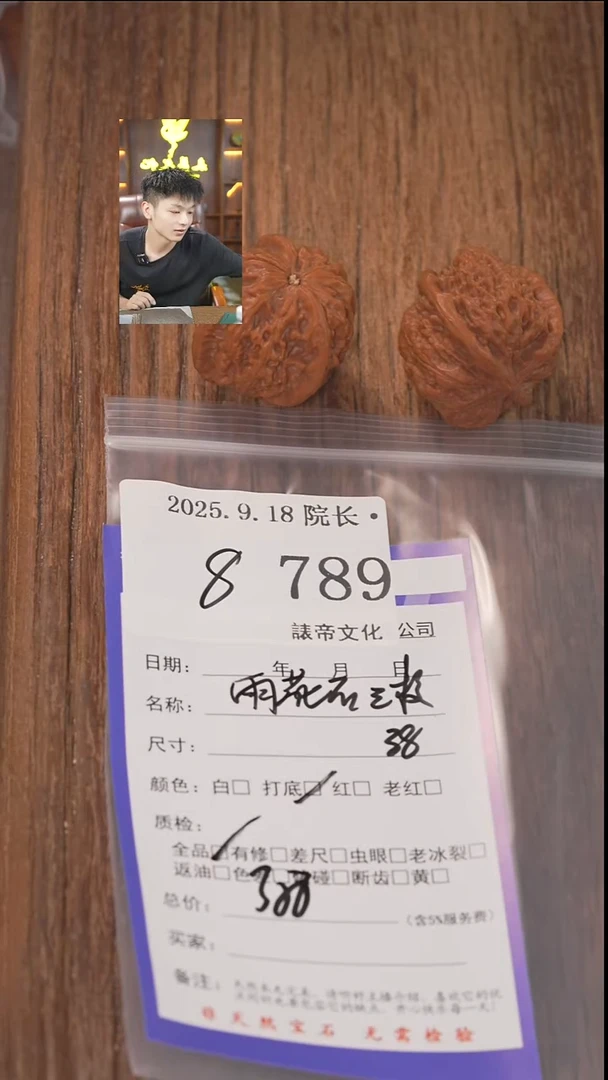 2025.9.18 院长·
8 789
䋿帝文化 公司
日期： 年 月 日
名称： 雨花石三枚
尺寸： 38
颜色：白□ 打底□ 红□ 老红□
质检：
全品□有修□差尺□虫眼□老冰裂□
返油□色 碰□断齿□黄□
总价： 300 （含5%服务费）
买家：
备注：
非天然宝石 无需检验